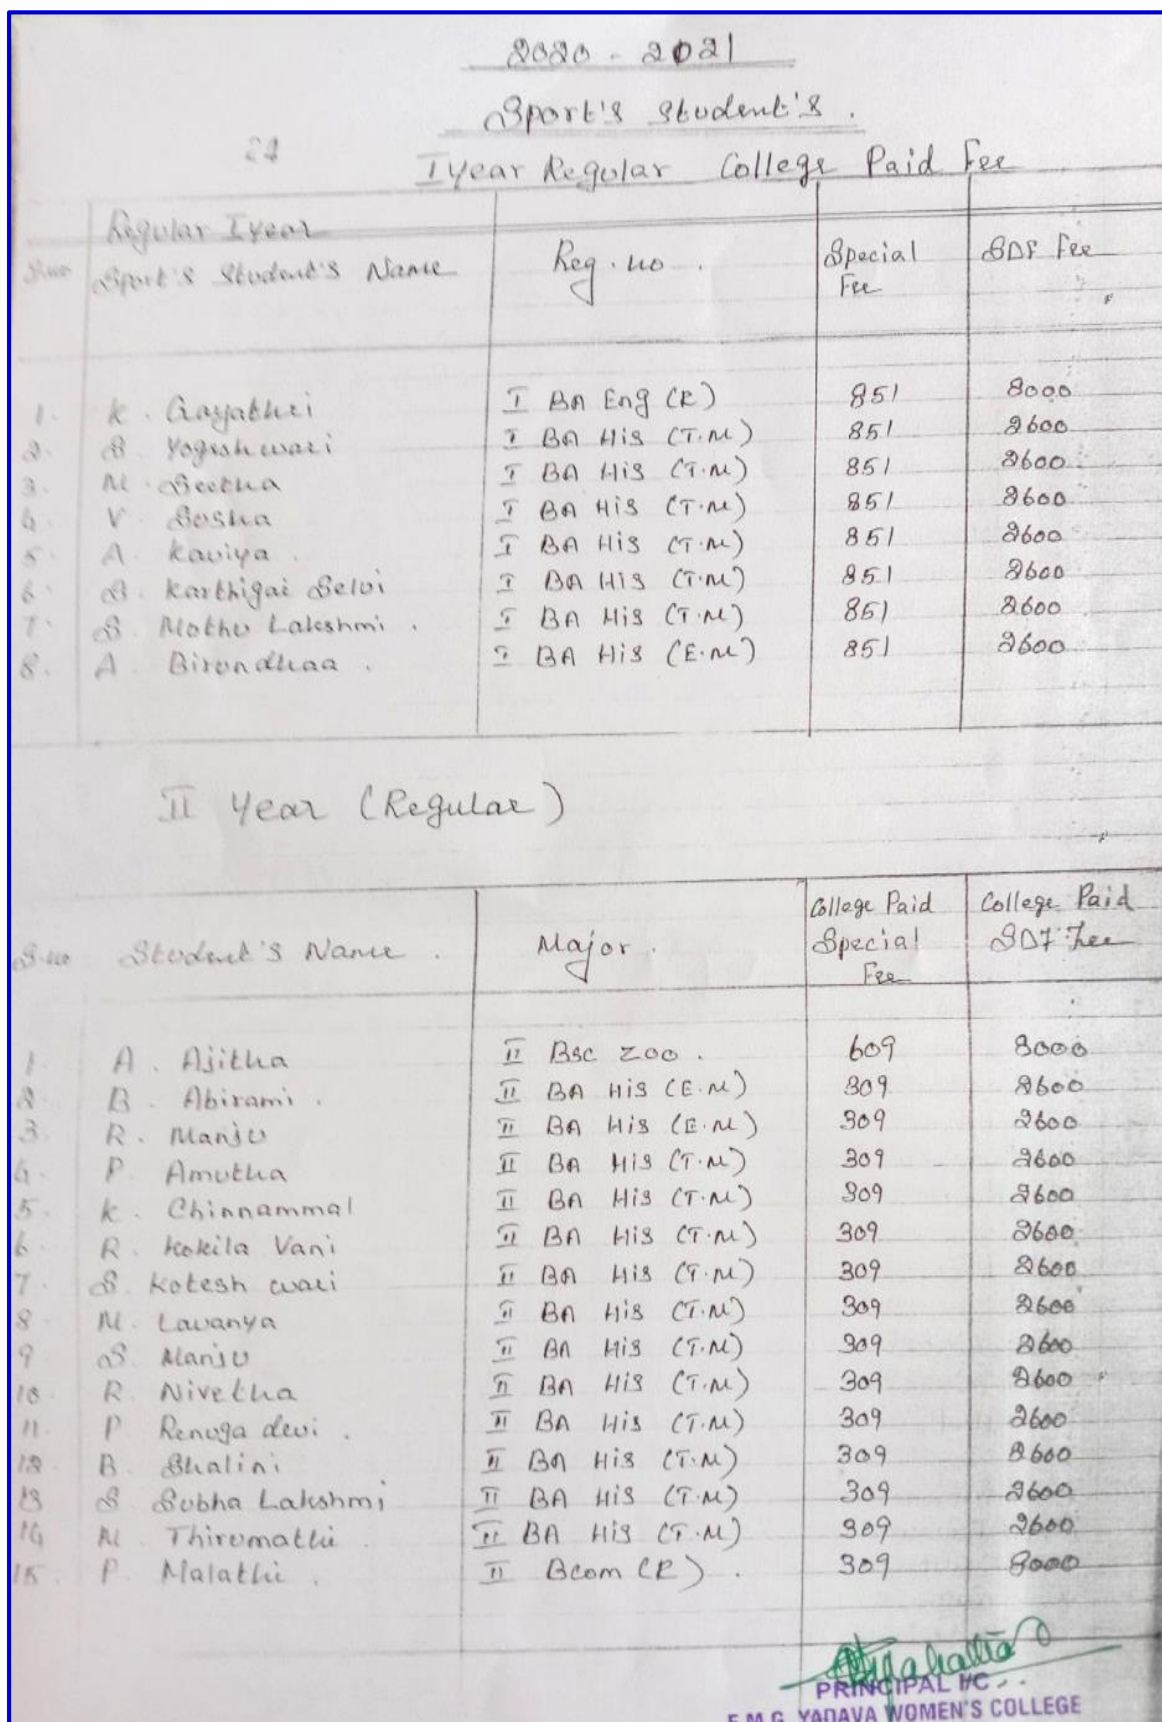 2020 - 2021
Sport's Student's.
24
I year Regular College Paid Fee
Regular I year
S.no Sport's Student's Name Reg. no. Special Fee SDF Fee
1. K. Gayathri I BA Eng (R) 851 8000
2. S. Yogeshwari I BA His (T.M) 851 2600
3. M. Seetha I BA His (T.M) 851 2600
4. V. Sosha I BA His (T.M) 851 2600
5. A. Kaviya. I BA His (T.M) 851 2600
6. S. Karthigai Selvi I BA His (T.M) 851 2600
7. S. Muthu Lakshmi. I BA His (T.M) 851 2600
8. A. Birundhaa. I BA His (E.M) 851 2600
II Year (Regular)
S.no Student's Name. Major. College Paid Special Fee College Paid SDF Fee
1. A. Ajitha II Bsc Zoo. 609 8000
2. B. Abirami. II BA His (E.M) 309 2600
3. R. Manju II BA His (E.M) 309 2600
4. P. Amutha II BA His (T.M) 309 2600
5. K. Chinnammal II BA His (T.M) 309 2600
6. R. Kokila Vani II BA His (T.M) 309 2600
7. S. Kotesh wari II BA His (T.M) 309 2600
8. M. Lavanya II BA His (T.M) 309 2600
9. S. Manju II BA His (T.M) 309 2600
10 R. Nivetha II BA His (T.M) 309 2600
11. P Renuga devi. II BA His (T.M) 309 2600
12 B. Shalini II BA His (T.M) 309 2600
13 S Subha Lakshmi II BA His (T.M) 309 2600
14 M. Thirumathi. II BA His (T.M) 309 2600
15. P. Malathi. II Bcom (R). 309 8000
PRINCIPAL I/C
E.M.G. YADAVA WOMEN'S COLLEGE